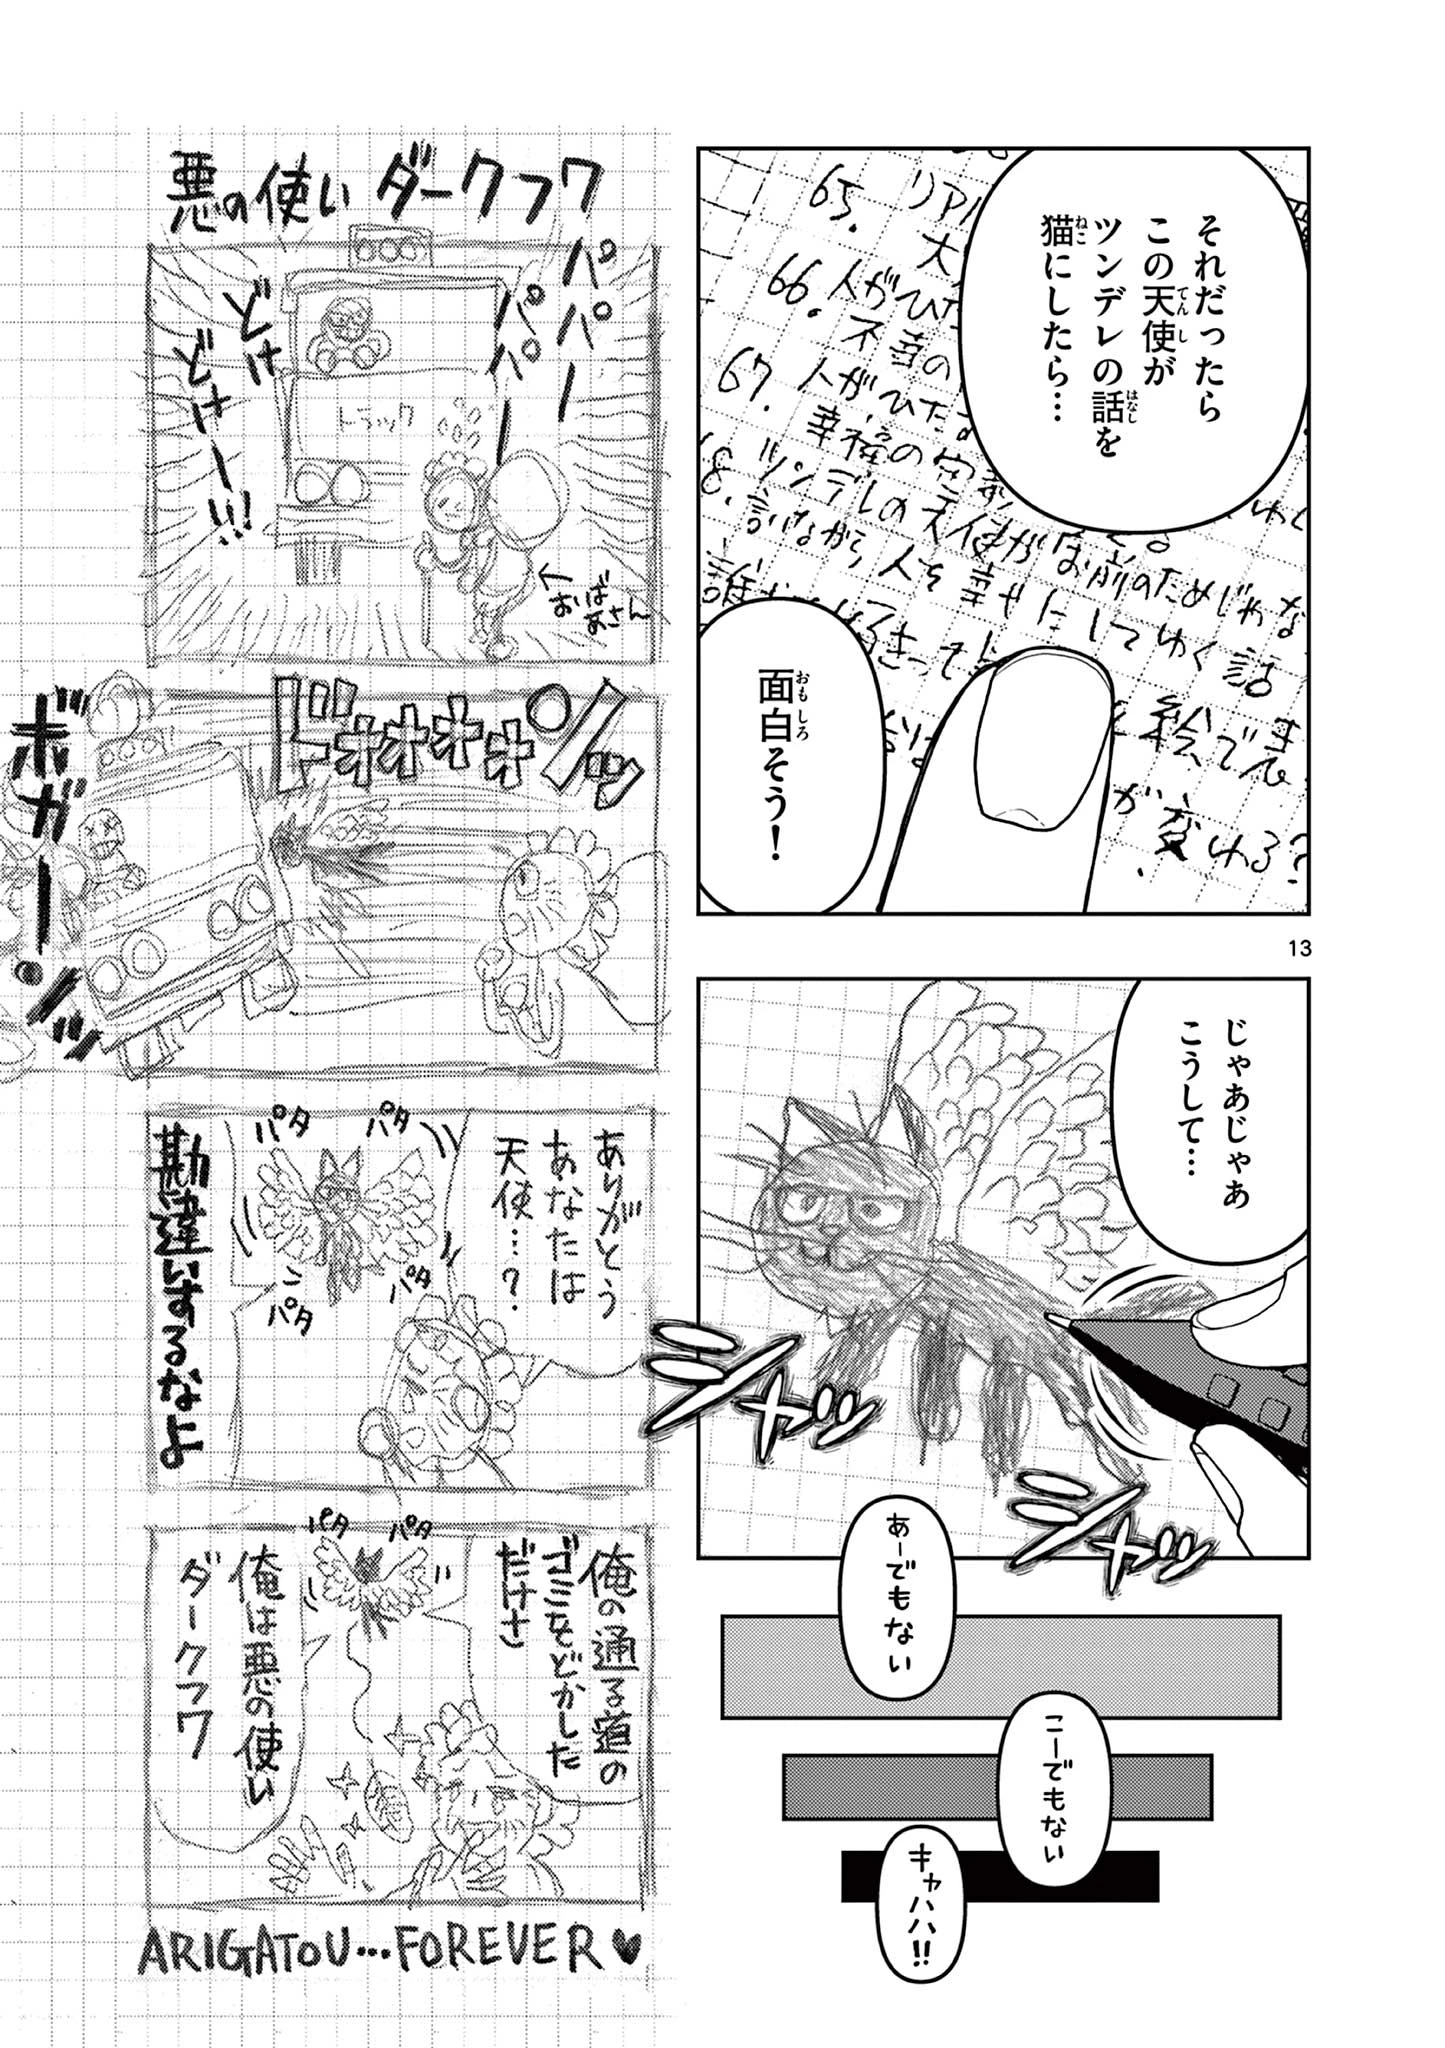 それだったら
この天使が
ツンデレの話を
猫にしたら…
てんし
はなし
ねこ
65. リアル
大
66. 人がひた
不幸の
67. 人がひたす
幸福の
ツンデレの天使がお前のためじゃな
言いながら人を幸せにしてゆく話
絵で表
が変わる?
面白そう!
おもしろ
13
じゃあじゃあ
こうして…
シャッ
シャッ
あーでもない
こーでもない
キャハハ!!
悪の使いダークフワ
パパー
パパー
どけ
どけー!!!
トラック
←おばあさん
ドォォォォンッ
ボガーンッ
ありがとう
あなたは
天使…?
パタ
パタ
パタ
パタ
勘違いするなよ
俺の通る道の
ゴミをどかした
だけさ
パタ
パタ
俺は悪の使い
ダークフワ
ARIGATOU…FOREVER♥